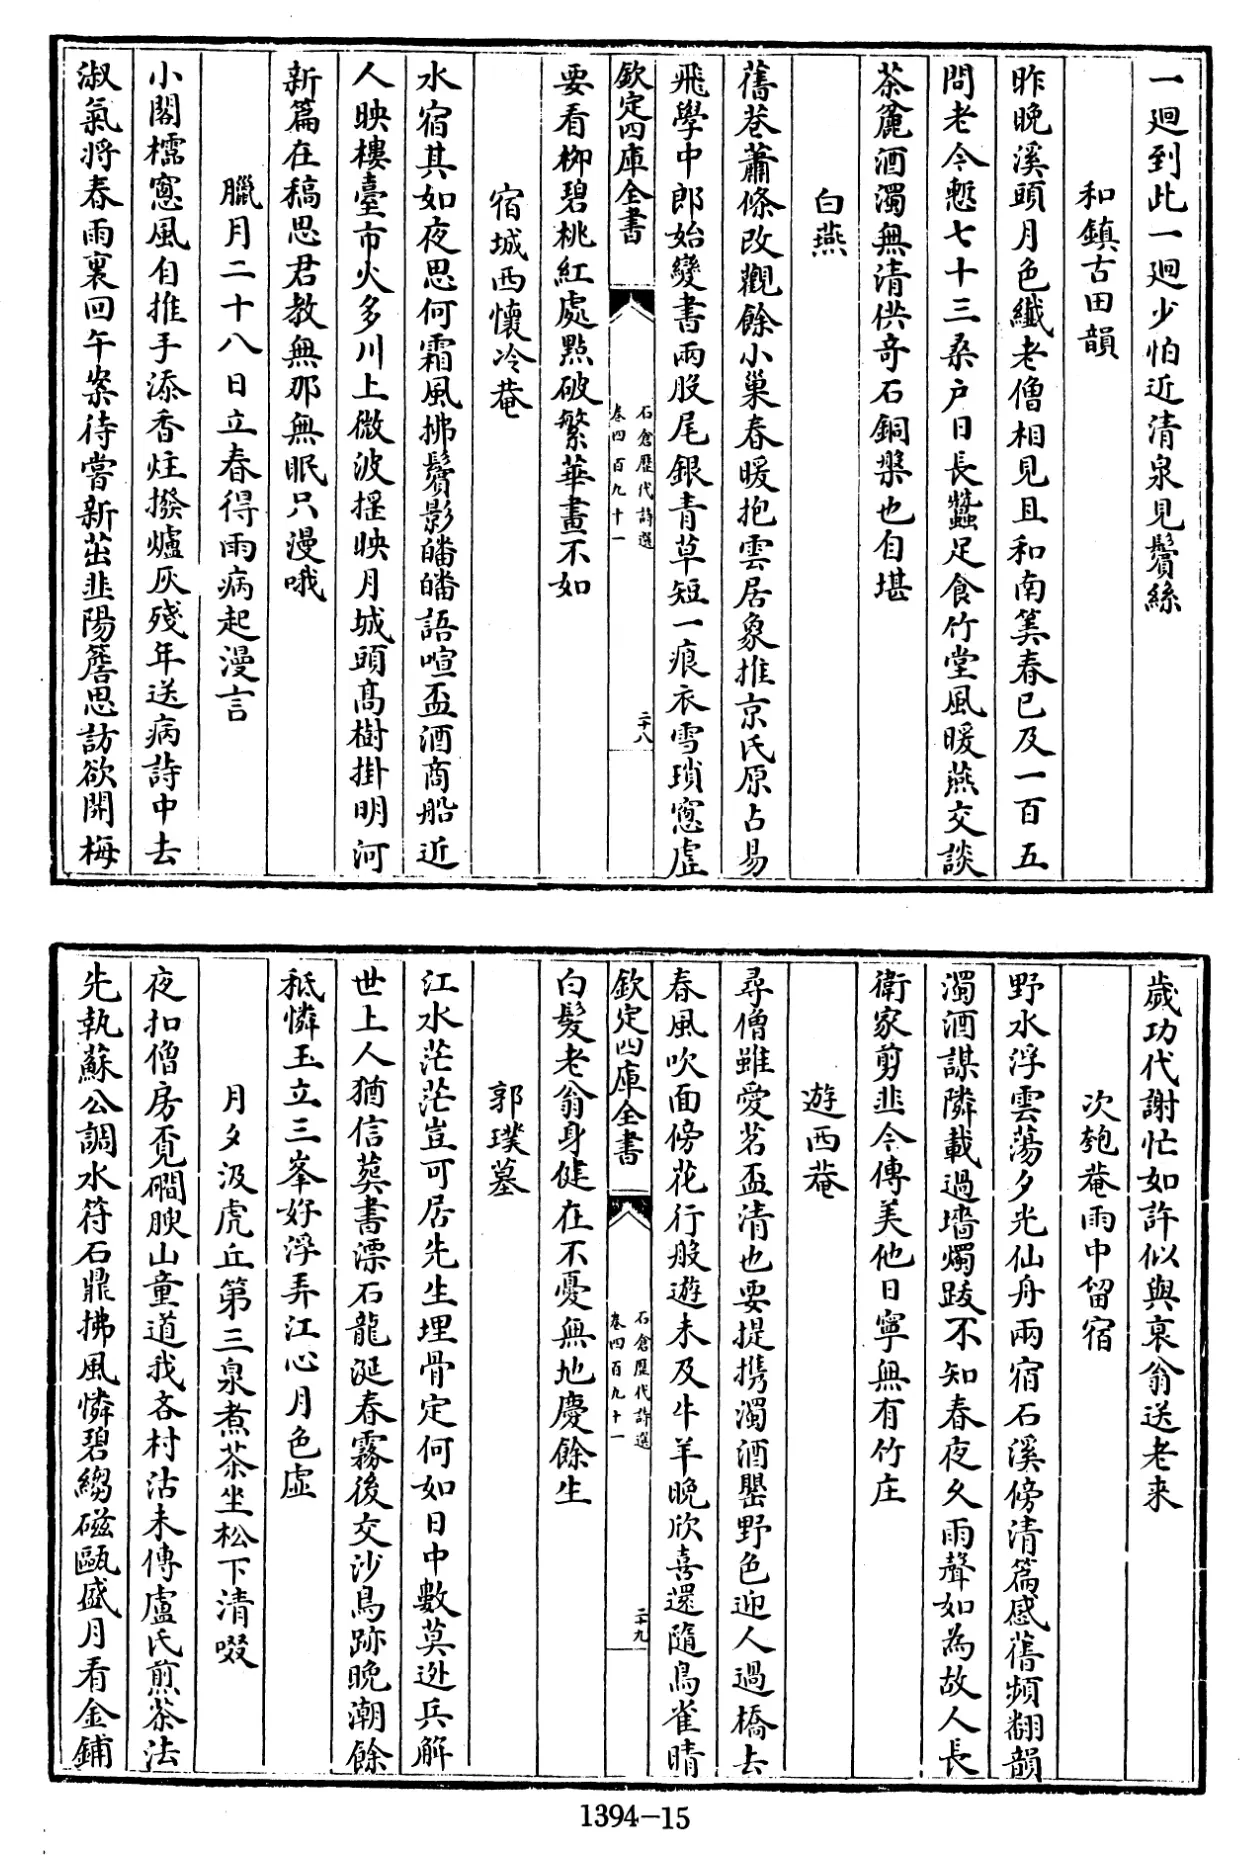 一迴到此一迴少怕近清泉見鬢絲
和鎮古田韻
昨晚溪頭月色纖老僧相見且和南筭春已及一百五
問老今慙七十三桑户日長蠶足食竹堂風暖燕交談
茶麄酒濁無清供奇石銅槃也自堪
白燕
舊巷蕭條改觀餘小巢春暖抱雲居象推京氏原占易
飛學中郎始變書兩股尾銀青草短一痕衣雪瑣窻虛
欽定四庫全書
石倉歷代詩選
卷四百九十一
二十八
要看柳碧桃紅處點破繁華畫不如
宿城西懷冷菴
水宿其如夜思何霜風拂鬢影皤皤語喧盃酒商船近
人映樓臺市火多川上微波搖映月城頭高樹掛明河
新篇在稿思君教無那無眠只漫哦
臘月二十八日立春得雨病起漫言
小閣櫺窻風自推手添香炷撥爐灰殘年送病詩中去
淑氣將春雨裏回午案待嘗新茁韭陽簷思訪欲開梅
歲功代謝忙如許似與衰翁送老来
次匏菴雨中留宿
野水浮雲蕩夕光仙舟兩宿石溪傍清篇感舊頻翻韻
濁酒謀隣載過墻燭跋不知春夜久雨聲如為故人長
衛家剪韭今傳美他日寧無有竹庄
遊西菴
尋僧雖愛茗盃清也要提攜濁酒罌野色迎人過橋去
春風吹面傍花行般遊未及牛羊晚欣喜還隨鳥雀晴
欽定四庫全書
石倉歷代詩選
卷四百九十一
二十九
白髮老翁身健在不憂無地慶餘生
郭璞墓
江水茫茫豈可居先生埋骨定何如日中數莫逃兵解
世上人猶信葬書漂石龍涎春霧後交沙鳥跡晚潮餘
秪憐玉立三峯好浮弄江心月色虛
月夕汲虎丘第三泉煮茶坐松下清啜
夜扣僧房覔磵腴山童道我吝村沽未傳盧氏煎茶法
先執蘇公調水符石鼎拂風憐碧縐磁甌盛月看金鋪
1394-15